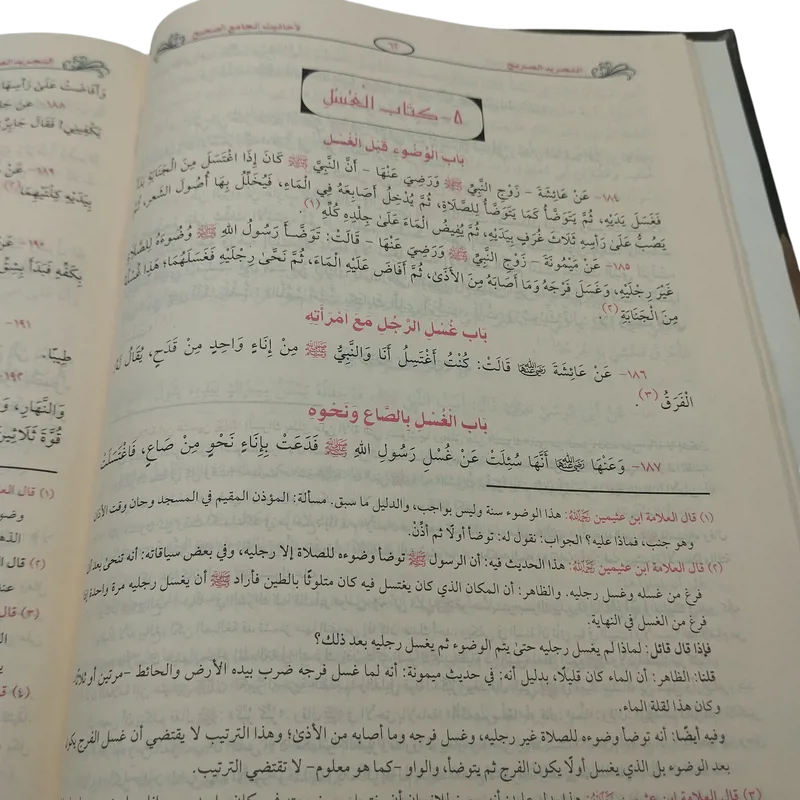 التجريد الصريح
٦٢
لأحاديث الجامع الصحيح
٥- كتاب الغسل
باب الوضوء قبل الغسل
١٨٤- عَنْ عَائِشَةَ - زَوْجِ النَّبِيِّ ﷺ وَرَضِيَ عَنْهَا - أَنَّ النَّبِيَّ ﷺ كَانَ إِذَا اغْتَسَلَ مِنَ الْجَنَابَةِ بَدَأَ
فَغَسَلَ يَدَيْهِ، ثُمَّ يَتَوَضَّأُ كَمَا يَتَوَضَّأُ لِلصَّلَاةِ، ثُمَّ يُدْخِلُ أَصَابِعَهُ فِي الْمَاءِ، فَيُخَلِّلُ بِهَا أُصُولَ الشَّعَرِ، ثُمَّ
يَصُبُّ عَلَىٰ رَأْسِهِ ثَلَاثَ غُرَفٍ بِيَدَيْهِ، ثُمَّ يُفِيضُ الْمَاءَ عَلَىٰ جِلْدِهِ كُلِّهِ (١).
١٨٥- عَنْ مَيْمُونَةَ - زَوْجِ النَّبِيِّ ﷺ وَرَضِيَ عَنْهَا - قَالَتْ: تَوَضَّأَ رَسُولُ اللهِ ﷺ وُضُوءَهُ لِلصَّلَاةِ
غَيْرَ رِجْلَيْهِ، وَغَسَلَ فَرْجَهُ وَمَا أَصَابَهُ مِنَ الْأَذَىٰ، ثُمَّ أَفَاضَ عَلَيْهِ الْمَاءَ، ثُمَّ نَحَّىٰ رِجْلَيْهِ فَغَسَلَهُمَا؛ هَذَا غُسْلُهُ
مِنَ الْجَنَابَةِ (٢).
باب غسل الرجل مع امرأته
١٨٦- عَنْ عَائِشَةَ رضي الله عنها قَالَتْ: كُنْتُ أَغْتَسِلُ أَنَا وَالنَّبِيُّ ﷺ مِنْ إِنَاءٍ وَاحِدٍ مِنْ قَدَحٍ، يُقَالُ لَهُ
الْفَرَقُ (٣).
باب الغسل بالصاع ونحوه
١٨٧- وَعَنْهَا رضي الله عنها أَنَّهَا سُئِلَتْ عَنْ غُسْلِ رَسُولِ اللهِ ﷺ فَدَعَتْ بِإِنَاءٍ نَحْوٍ مِنْ صَاعٍ، فَاغْتَسَلَتْ
(١) قال العلامة ابن عثيمين رحمه الله: هذا الوضوء سنة وليس بواجب، والدليل ما سبق. مسألة: المؤذن المقيم في المسجد وحان وقت الأذان
وهو جنب، فماذا عليه؟ الجواب: نقول له: توضأ أولًا ثم أذِّنْ.
(٢) قال العلامة ابن عثيمين رحمه الله: هذا الحديث فيه: أن الرسول ﷺ توضأ وضوءه للصلاة إلا رجليه، وفي بعض سياقاته: أنه تنحىٰ بعد أن
فرغ من غسله وغسل رجليه. والظاهر: أن المكان الذي كان يغتسل فيه كان متلوثًا بالطين فأراد ﷺ أن يغسل رجليه مرة واحدة إذا
فرغ من الغسل في النهاية.
فإذا قال قائل: لماذا لم يغسل رجليه حتىٰ يتم الوضوء ثم يغسل رجليه بعد ذلك؟
قلنا: الظاهر: أن الماء كان قليلًا، بدليل أنه: في حديث ميمونة: أنه لما غسل فرجه ضرب بيده الأرض والحائط -مرتين أو ثلاثًا-
وكان هذا لقلة الماء.
وفيه أيضًا: أنه توضأ وضوءه للصلاة غير رجليه، وغسل فرجه وما أصابه من الأذىٰ؛ وهذا الترتيب لا يقتضي أن غسل الفرج يكون
بعد الوضوء بل الذي يغسل أولًا يكون الفرج ثم يتوضأ، والواو -كما هو معلوم- لا تقتضي الترتيب.
(٣) قال العلامة ابن عثيمين
وَأَفَاضَتْ عَلَىٰ رَأْسِهَا
١٨٨- عَنْ
يَكْفِينِي! فَقَالَ جَابِرٌ
١٨٩- عَنْ
بِيَدَيْهِ كِلْتَيْهِمَا (٢)
١٩٠- عَنْ
بِكَفِّهِ فَبَدَأَ بِشِقِّ
١٩١-
طِيبًا.
١٩٢-
وَالنَّهَارِ،
قُوَّةَ ثَلَاثِينَ
(١) قال
(٢) قال
(٣) قال
(٤)